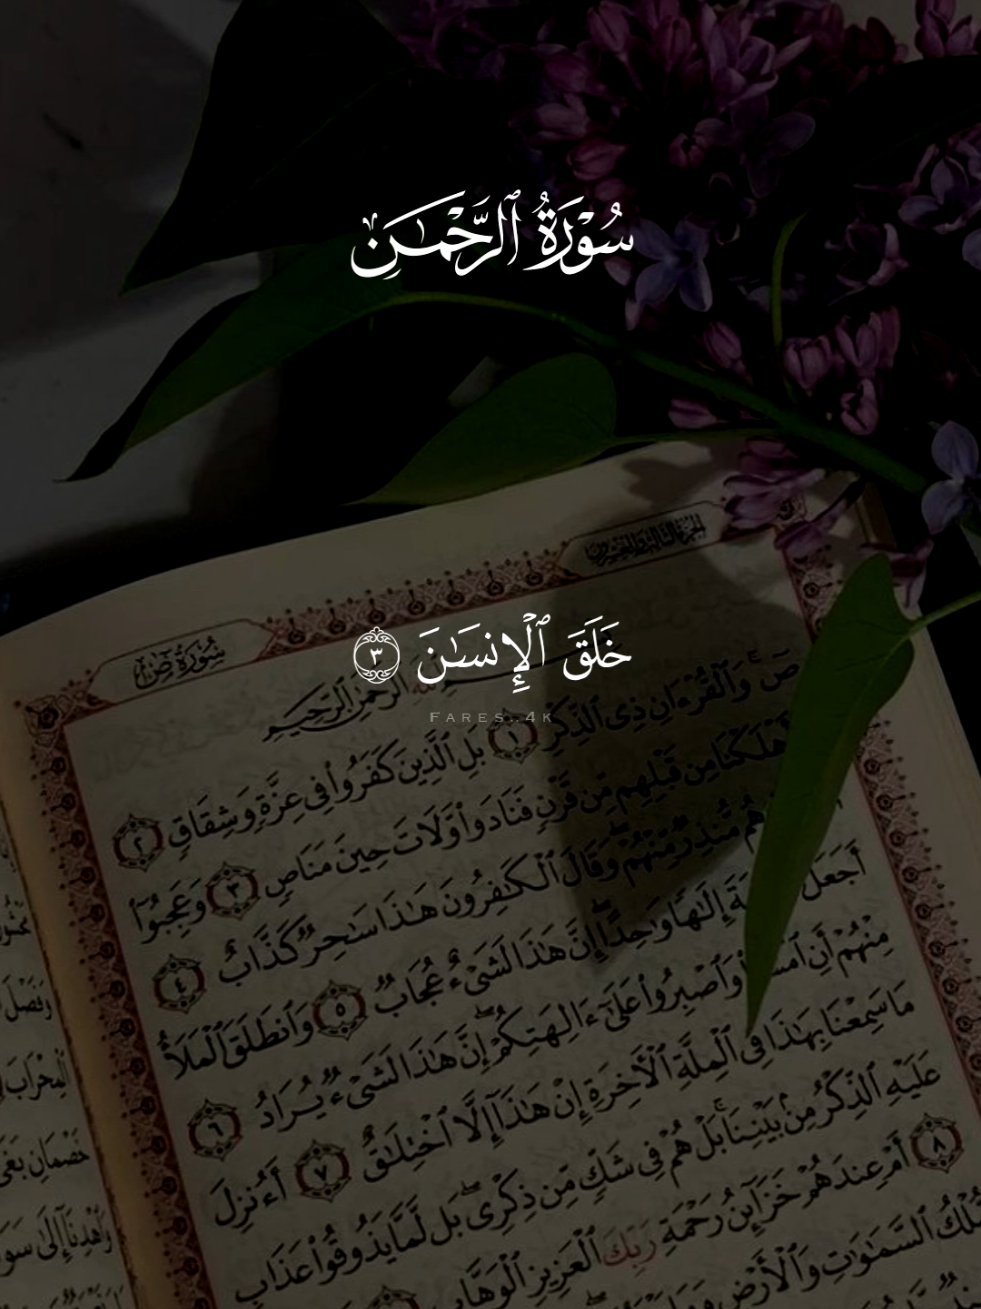 سُورَةُ ٱلرَّحْمَـٰن
خَلَقَ ٱلْإِنسَـٰنَ ٣
FARES..4K
الجزء الثالث والعشرون
سُورَةُ صٓ
ٱلرَّحْمَٰنِ ٱلرَّحِيمِ
صٓ وَٱلْقُرْءَانِ ذِى ٱلذِّكْرِ ١ بَلِ ٱلَّذِينَ كَفَرُوا۟ فِى عِزَّةٍ وَشِقَاقٍ ٢
أَهْلَكْنَا مِن قَبْلِهِم مِّن قَرْنٍ فَنَادَوا۟ وَّلَاتَ حِينَ مَنَاصٍ ٣ وَعَجِبُوٓا۟
هُم مُّنذِرٌ مِّنْهُمْ وَقَالَ ٱلْكَٰفِرُونَ هَٰذَا سَٰحِرٌ كَذَّابٌ ٤
أَجَعَلَ إِلَٰهًا وَٰحِدًا إِنَّ هَٰذَا لَشَىْءٌ عُجَابٌ ٥ وَٱنطَلَقَ ٱلْمَلَأُ
مِنْهُمْ أَنِ وَٱصْبِرُوا۟ عَلَىٰٓ ءَالِهَتِكُمْ إِنَّ هَٰذَا لَشَىْءٌ يُرَادُ ٦
مَا سَمِعْنَا بِهَٰذَا فِى ٱلْمِلَّةِ ٱلْأٓخِرَةِ إِنْ هَٰذَآ إِلَّا ٱخْتِلَٰقٌ ٧ أَءُنزِلَ
عَلَيْهِ ٱلذِّكْرُ مِنۢ بَيْنِنَا بَلْ هُمْ فِى شَكٍّ مِّن ذِكْرِى بَل لَّمَّا يَذُوقُوا۟ عَذَابِ
٨ أَمْ عِندَهُمْ خَزَآئِنُ رَحْمَةِ رَبِّكَ ٱلْعَزِيزِ ٱلْوَهَّابِ
مُّلْكُ ٱلسَّمَٰوَٰتِ وَٱلْأَرْضِ